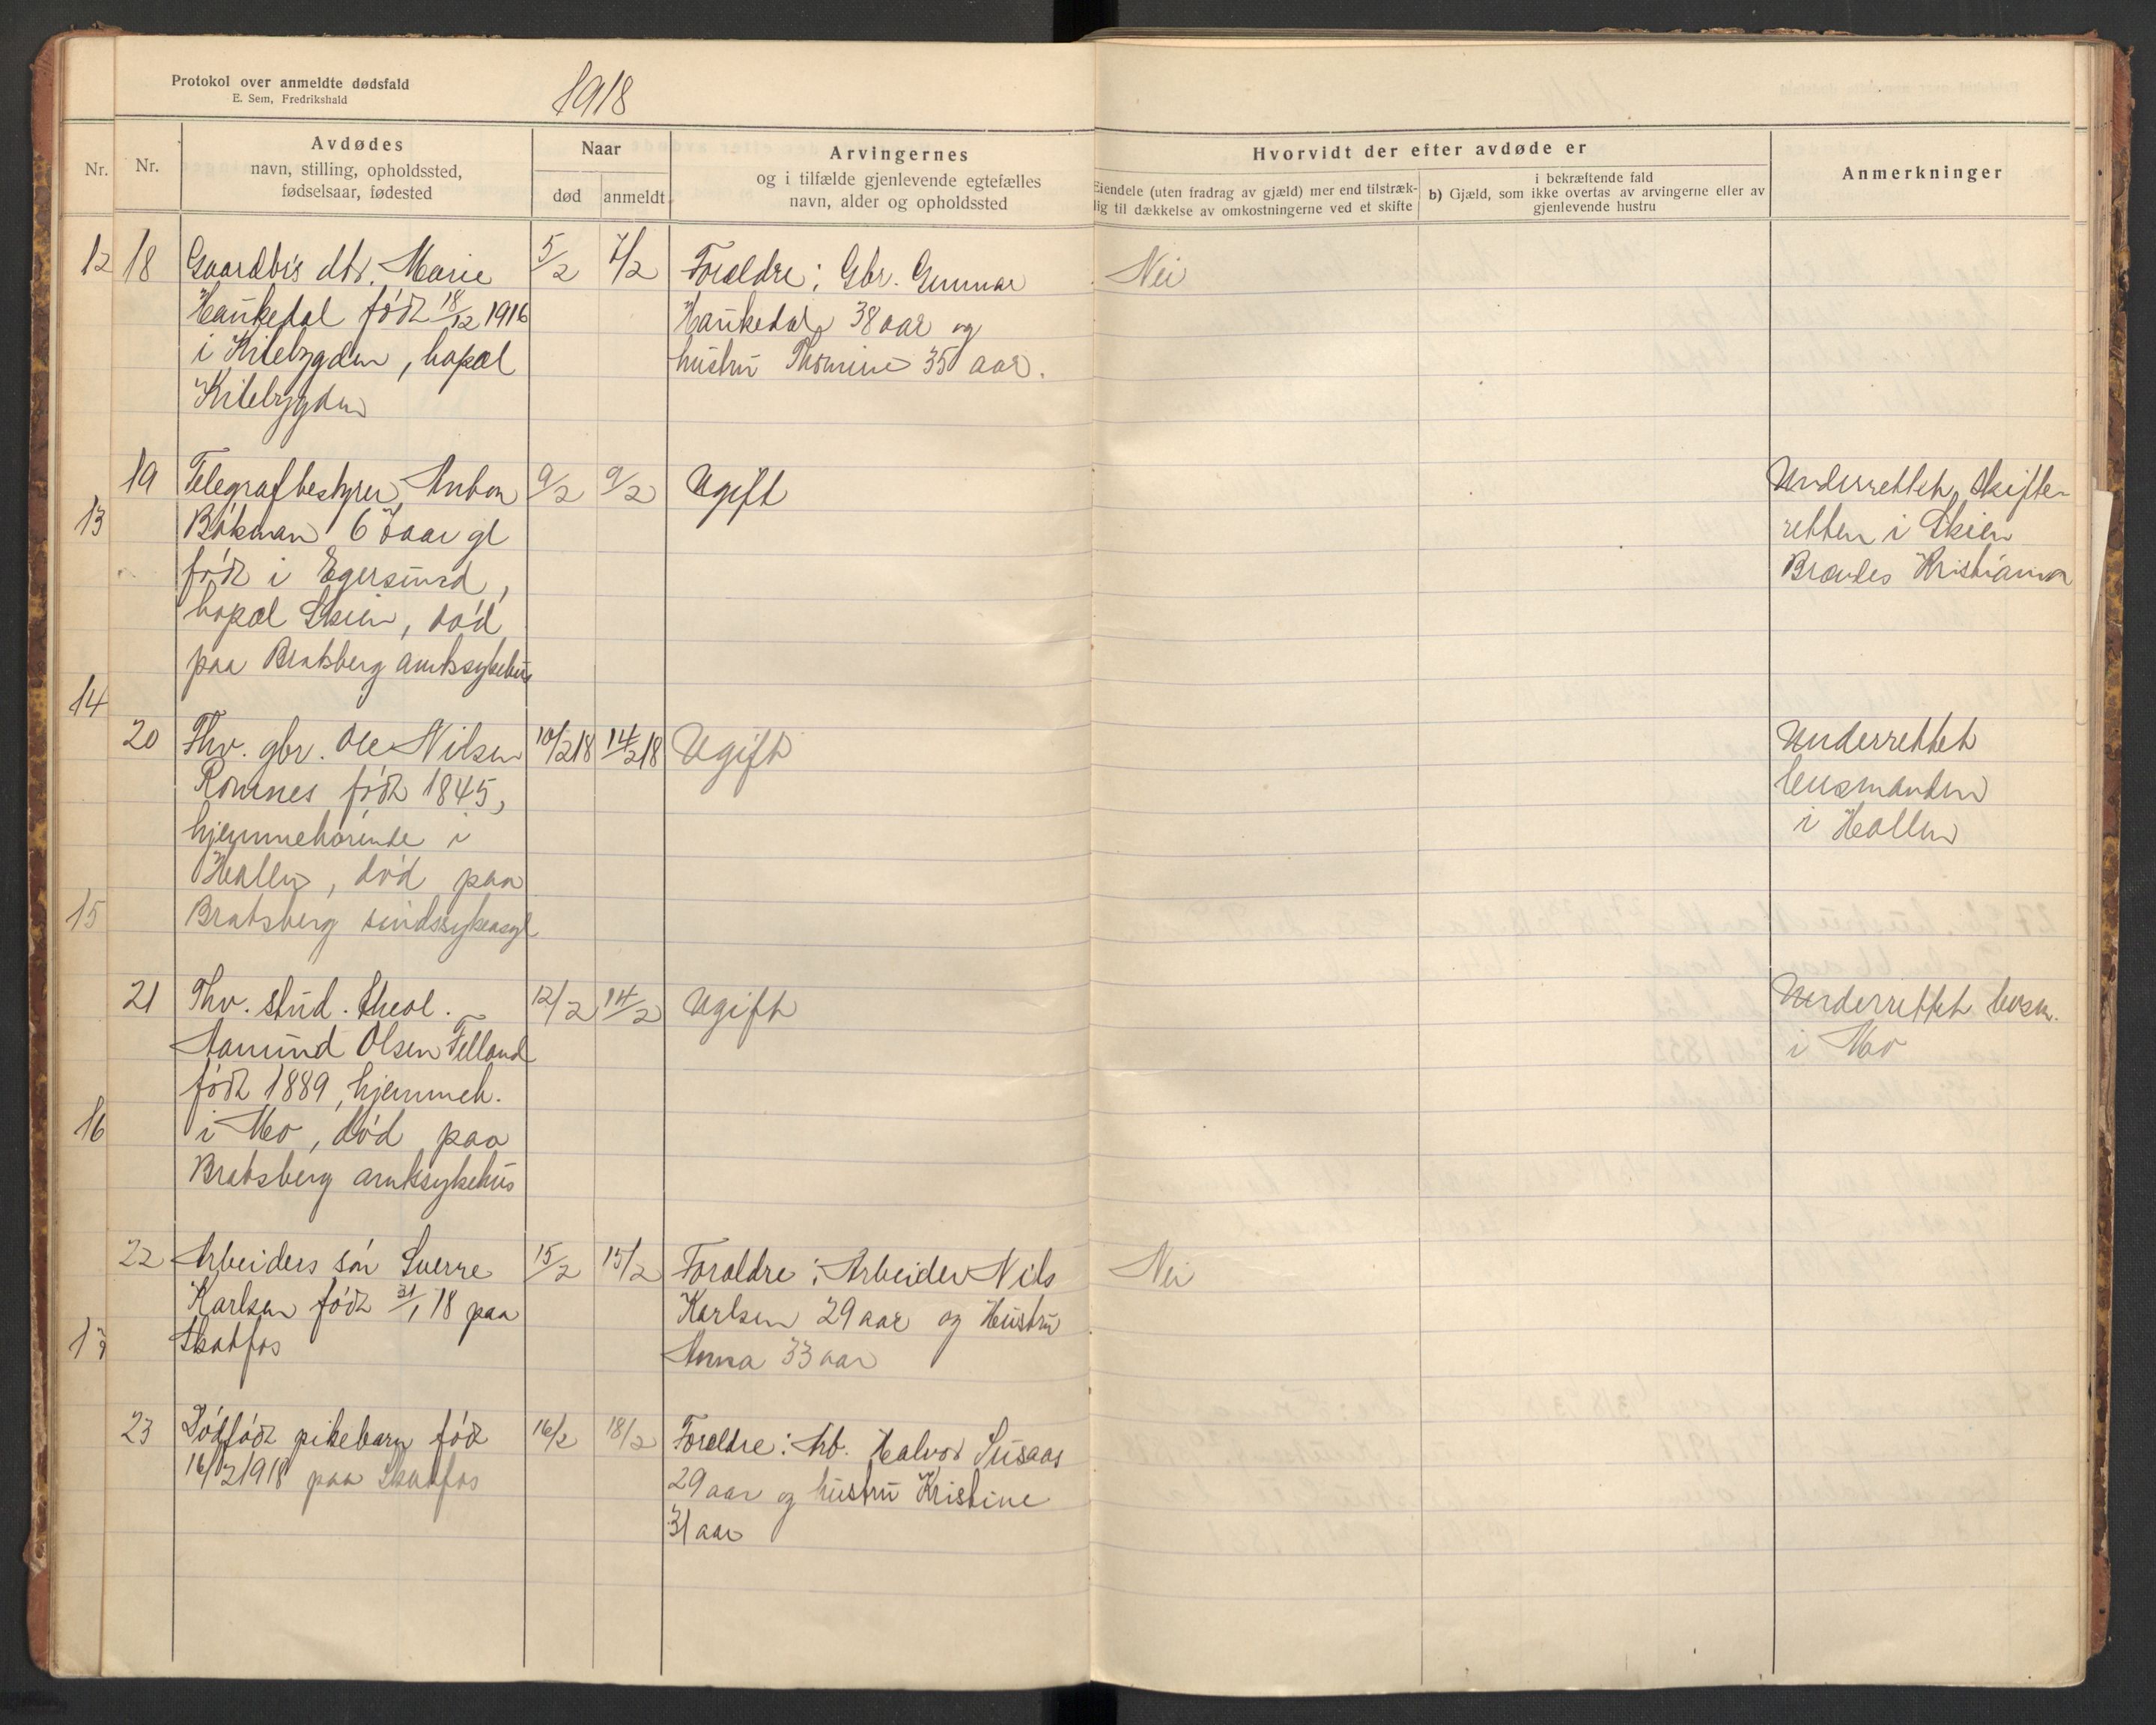 Protokol over anmeldte dødsfald
E. Sem, Fredrikshald
1918
Nr.
Nr.
Avdødes
navn, stilling, opholdssted,
fødselsaar, fødested
Naar
død
anmeldt
Arvingernes
og i tilfælde gjenlevende egtefælles
navn, alder og opholdssted
Hvorvidt der efter avdøde er
Eiendele (uten fradrag av gjæld) mer end tilstræk-
lig til dækkelse av omkostningerne ved et skifte
i bekræftende fald
b) Gjæld, som ikke overtas av arvingerne eller av
gjenlevende hustru
Anmerkninger
12
18
Gaardbr's dtr. Marie
Haukedal född 18/12 1916
i Kilebygden, bopæl
Kilebygden
5/2
7/2
Forældre: Gbr. Gunnar
Haukedal 38 aar og
hustru Thomine 35 aar.
Nei
13
19
Telegrafbestyrer Anton
Bökman 67 aar gl
född i Egersund,
bopæl Skien, död
paa Bratsberg amtssykehus
9/2
9/2
Ugift
Underrettet Skifte-
retten i Skien
Kristiania
14
20
Fhv. gbr. Ole Nilsen
Romnes född 1845,
hjemmehörende i
Hollen, död paa
Bratsberg sindssykeasyl
10/2 18
14/2 18
Ugift
Underrettet
lensmanden
i Hollen
15
21
Fhv. stud. theol.
Aamund Olsen Felland
född 1889, hjemmeh.
i Mo, död paa
Bratsberg amtssykehus
12/2
14/2
Ugift
Underrettet lensm.
i Mo
16
22
Arbeiders sön Sverre
Karlsen född 31/1 18 paa
Skotfos
15/2
15/2
Forældre: Arbeider Nils
Karlsen 29 aar og Hustru
Anna 33 aar
Nei
17
23
Dödfödt pikebarn född
16/2 1918 paa Skotfos
16/2
18/2
Forældre: Arb. Halvor Susaas
29 aar og hustru Kristine
31 aar